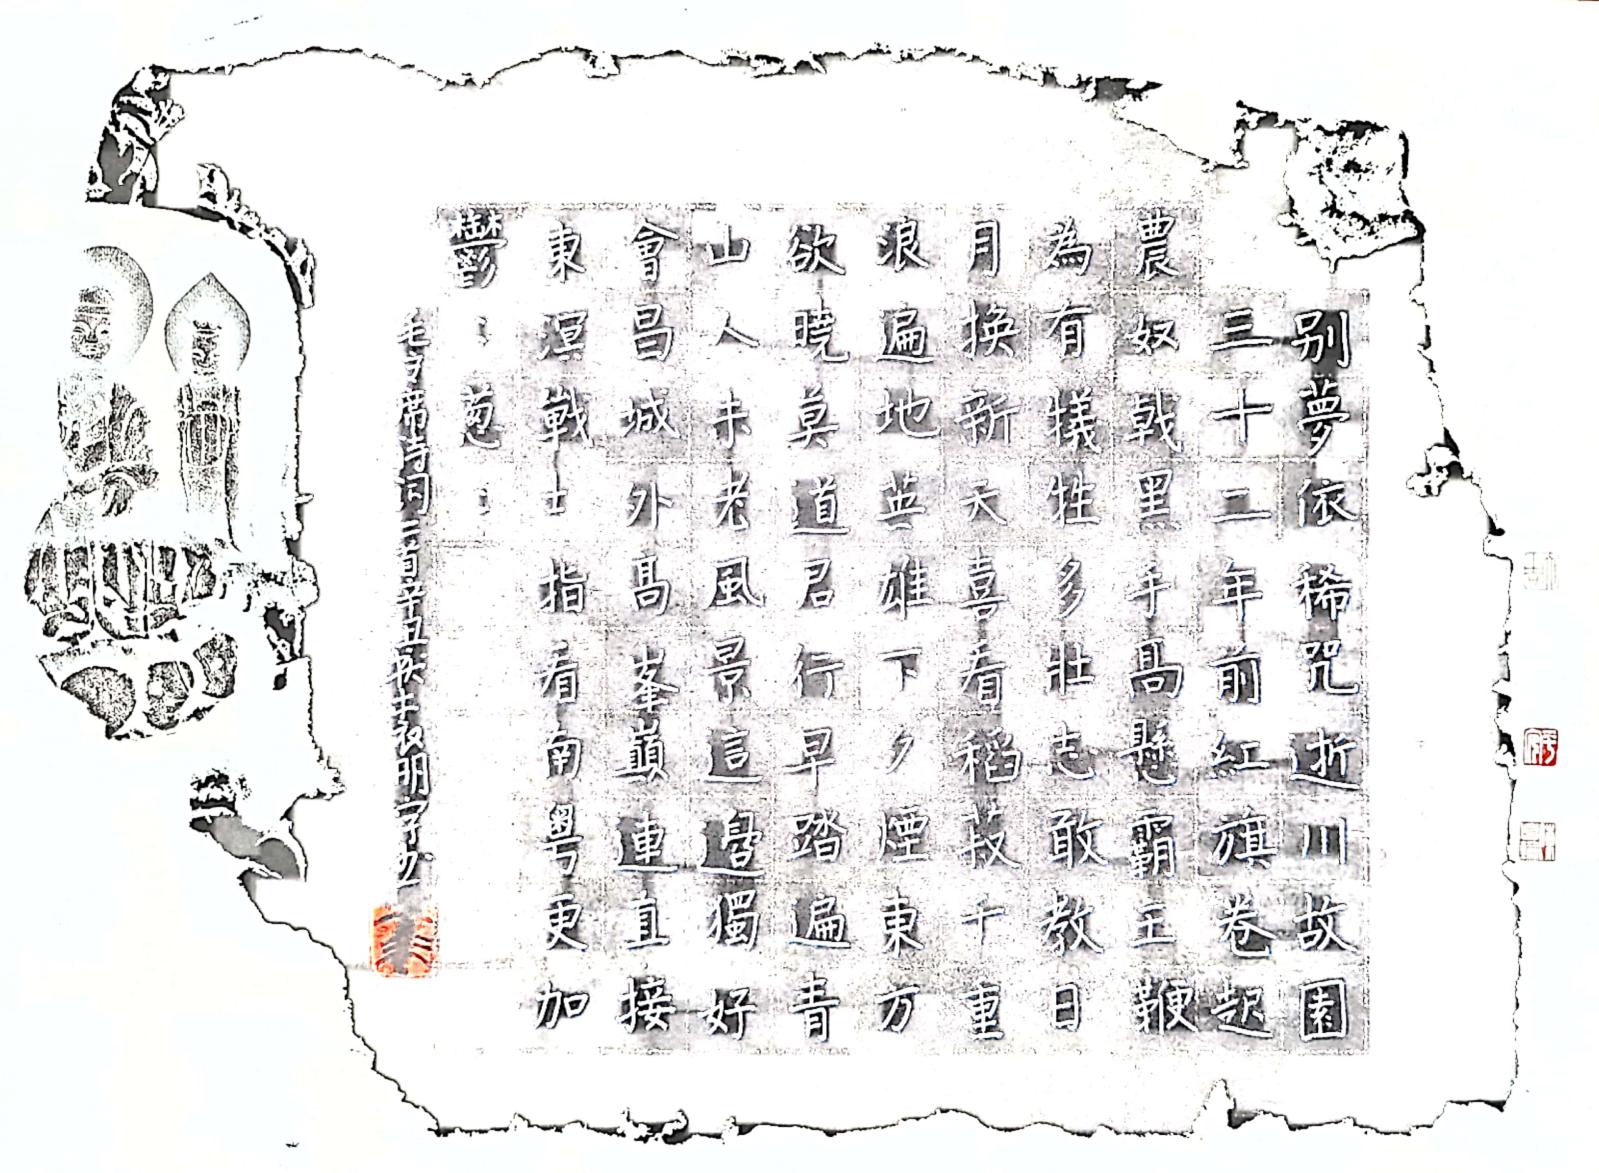 别夢依稀咒逝川故園
三十二年前紅旗卷起
農奴戟黑手高懸霸王鞭
為有犧牲多壯志敢教日
月換新天喜看稻菽千重
浪遍地英雄下夕煙東方
欲曉莫道君行早踏遍青
山人未老風景這邊獨好
會昌城外高峯巔連直接
東溟戰士指看南粵更加
鬱：葱：
毛主席诗词二首辛丑